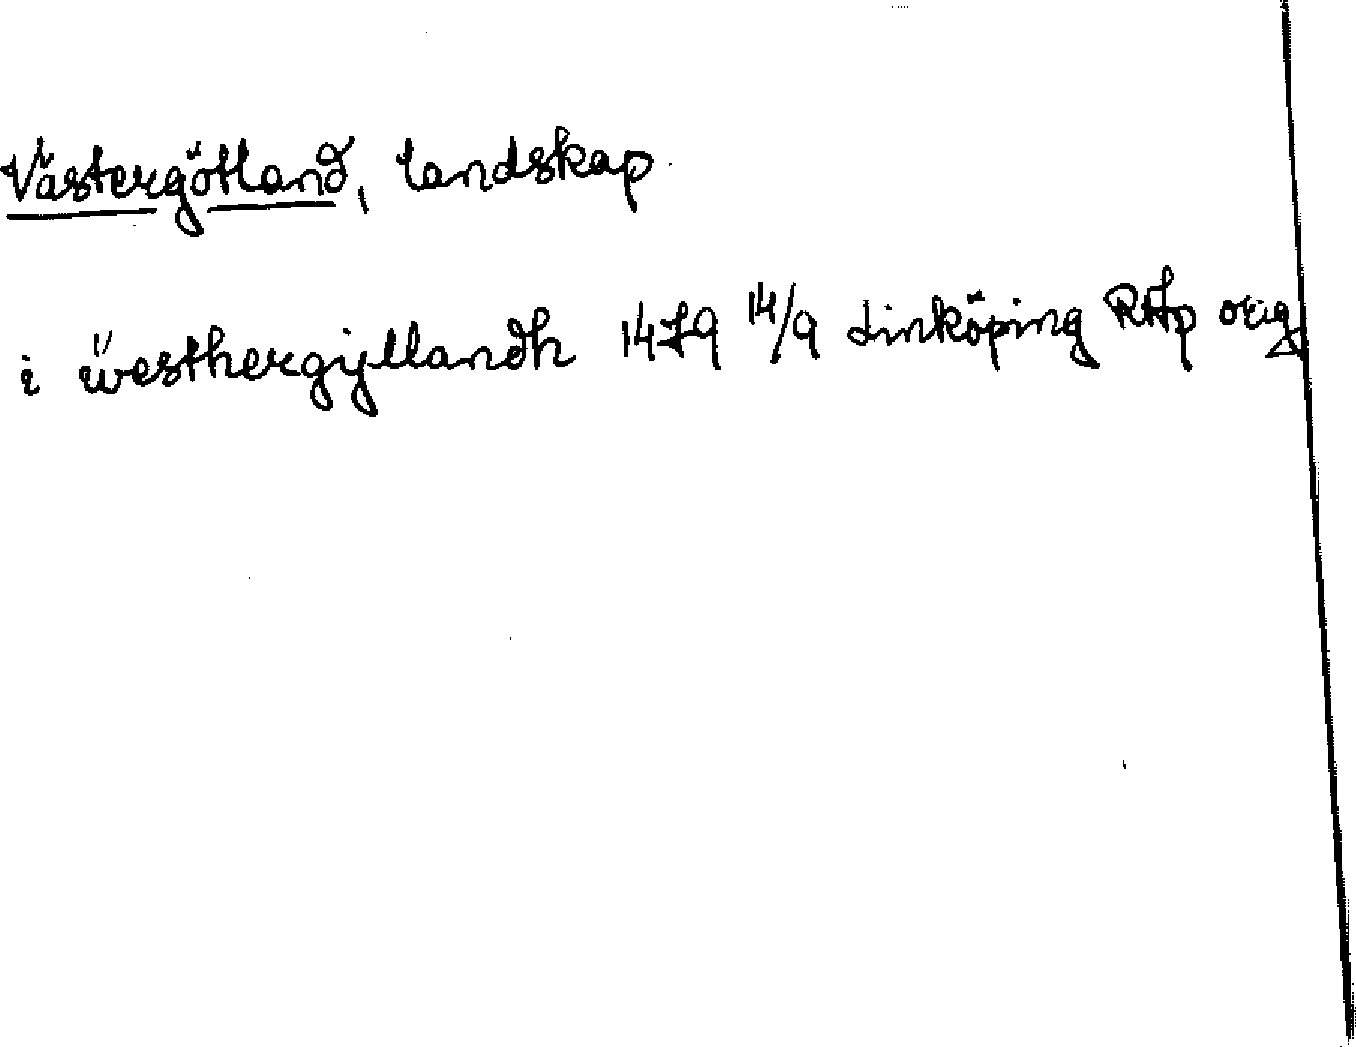 Västergötland, landskap
i ẅesthergÿllandh 1479 14/9 Linköping RAp orig